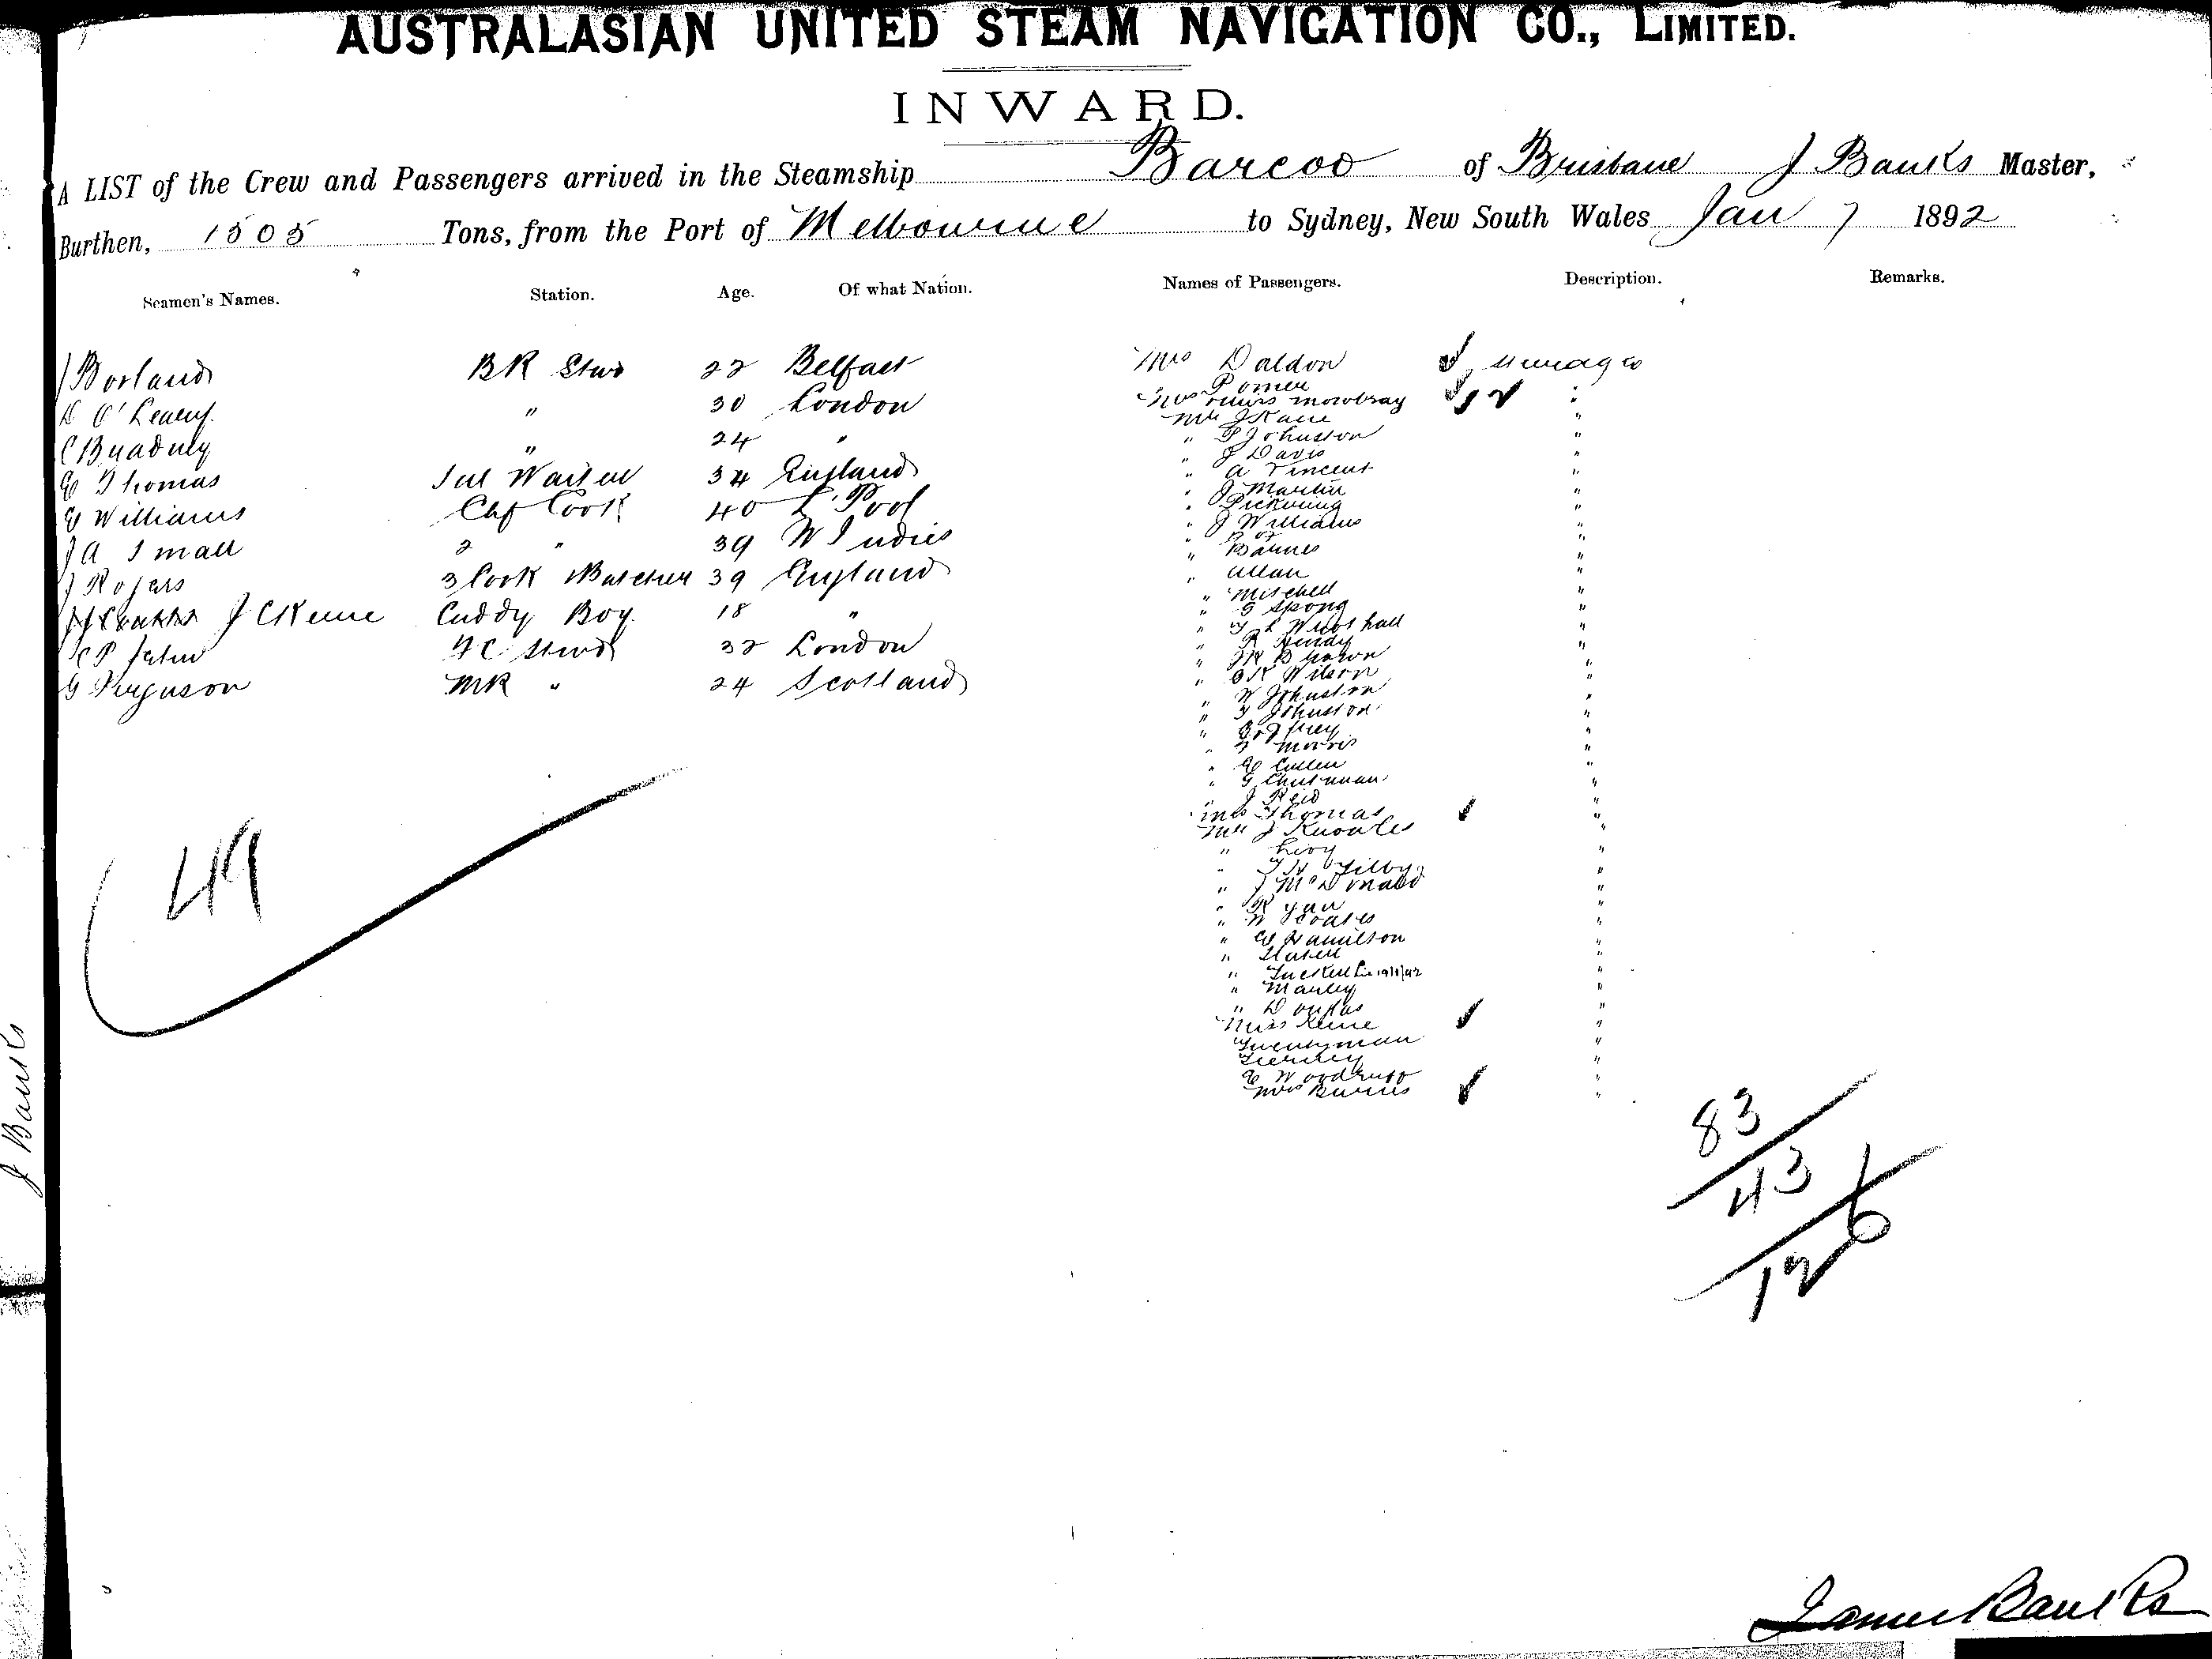 AUSTRALASIAN UNITED STEAM NAVIGATION CO., LIMITED.
INWARD.
A LIST of the Crew and Passengers arrived in the Steamship Barcoo of Brisbane J Banks Master,
Burthen, 1505 Tons, from the Port of Melbourne to Sydney, New South Wales Jan 7 1892
Seamen's Names. Station. Age. Of what Nation. Names of Passengers. Description. Remarks.
J Borland BR Stwd 22 Belfast
D O'Leary " 30 London
C " 24 "
G Thomas Sal Waiter 34 England
G Williams Chf Cook 40 L'Pool
J A Small 2 " 39 W Indies
J Rogers 3 Cook Butcher 39 England
J C Keene Cuddy Boy 18 "
F C Stwds 32 London
G Ferguson MR " 24 Scotland
49
Mrs Daldon
Mowbray
Mr J Kane
" P Johnston
" J Davis
" A Vincent
" J Martin
" Pickering
" J Williams
" Barnes
" Allan
" Mitchell
" G Spong
" Hendy
" Wilson
" W Johnston
" Johnston
" Godfrey
" Morris
" G Cullen
" G Chapman
" J Reid
Mrs Thomas
Mr J Knowles
" Levy
" Gilby
" J McDonald
" Ryan
" W Coates
" Hamilton
" Slater
" Manley
" Douglas
Miss Keene
Twentyman
Tierney
G Woodruff
Mrs Burns
83
43
126
J Banks
James Banks